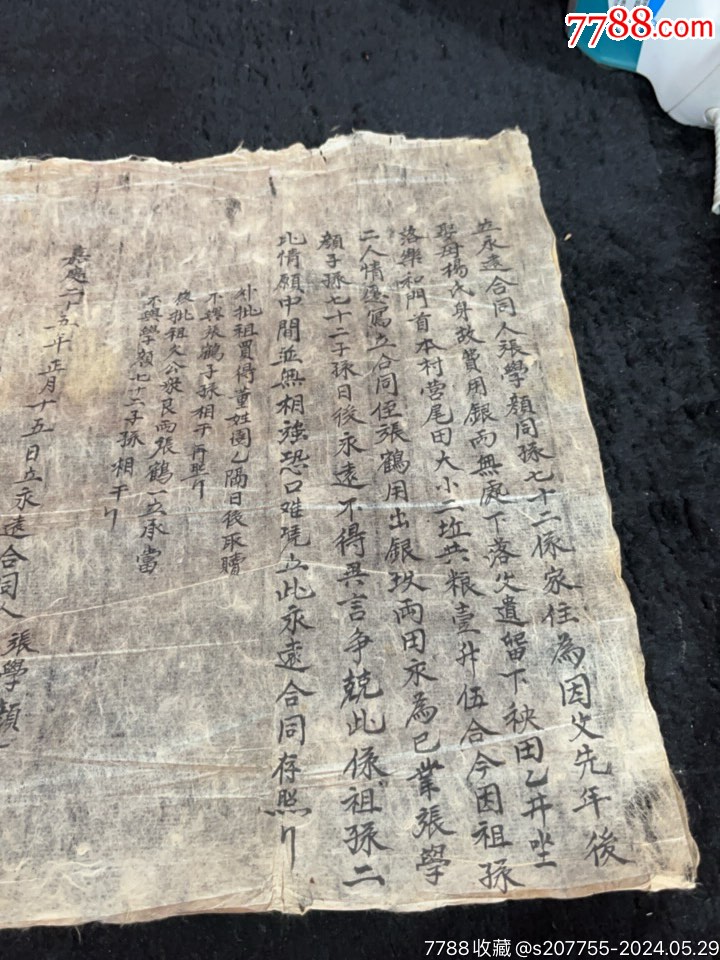 7788.com
立永遠合同人張學顏同孫七十二係家住為因父先年後
娶母楊氏身故費用銀両無處下落父遺留下秧田乙井坐
落樂和門首本村营尾田大小二坵共粮壹升伍合今因祖孫
二人情愿寫立合同侄張鶴用出銀玖両田永為已業張學
顏子孫七十二子孫日後永遠不得異言争兢此係祖孫二
比情願中間並無相強恐口难凭立此永遠合同存照
外批祖買得董姓園乙隔日後取贖
不與張鶴子孫相干再照
後批祖父公 艮両張鶴一立承當
不與學顏七十二子孫相干
嘉慶二十五年正月十五日立永遠合同人張學顏
7788收藏@s207755-2024.05.29